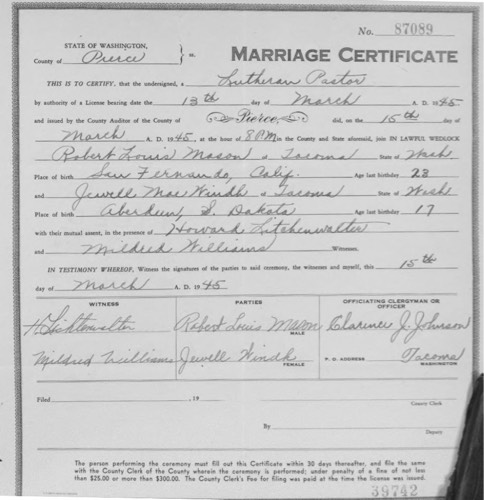 No. 87089
STATE OF WASHINGTON,
County of Pierce } ss.
MARRIAGE CERTIFICATE
THIS IS TO CERTIFY, that the undersigned, a Lutheran Pastor
by authority of a License bearing date the 13th day of March A. D. 1945
and issued by the County Auditor of the County of Pierce, did, on the 15th day of
March A. D. 1945, at the hour of 8 PM in the County and State aforesaid, join IN LAWFUL WEDLOCK
Robert Louis Mason of Tacoma State of Wash.
Place of birth San Fernando, Calif. Age last birthday 23
and Jewell Mae Windh of Tacoma State of Wash
Place of birth Aberdeen, S. Dakota Age last birthday 17
with their mutual assent, in the presence of Howard Litchenwalter
and Mildred Williams Witnesses.
IN TESTIMONY WHEREOF, Witness the signatures of the parties to said ceremony, the witnesses and myself, this 15th
day of March A. D. 1945
WITNESS PARTIES OFFICIATING CLERGYMAN OR OFFICER
H Lichtewalter Robert Louis Mason Clarence J. Johnson
MALE
Mildred Williams Jewell Windh P. O. ADDRESS Tacoma
FEMALE WASHINGTON
Filed , 19
County Clerk
By
Deputy
The person performing the ceremony must fill out this Certificate within 30 days thereafter, and file the same
with the County Clerk of the County wherein the ceremony is performed; under penalty of a fine of not less
than $25.00 or more than $300.00. The County Clerk's Fee for filing was paid at the time the license was issued.
39742